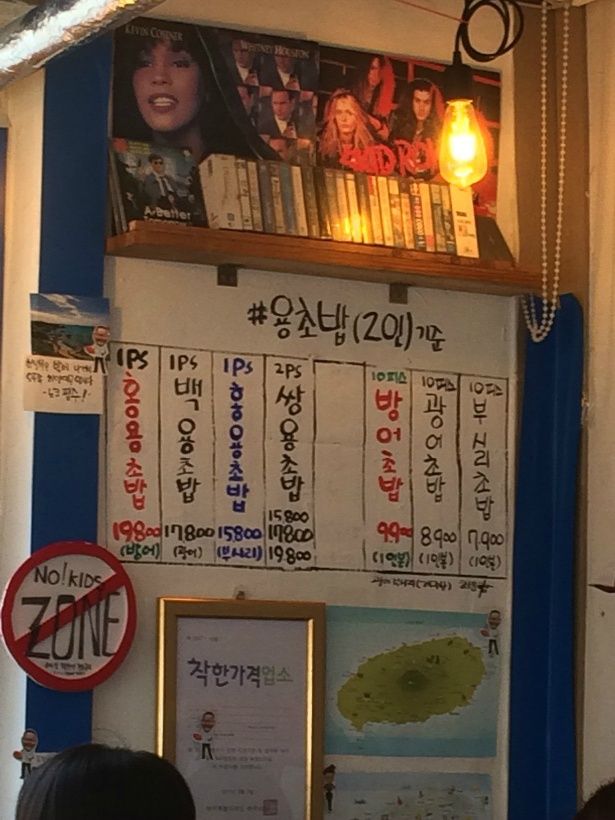 KEVIN COSTNER
WHITNEY HOUSTON
SKID ROW
A Better
#용초밥 (2인) 기준
1PS
홍용초밥
19800
(방어)
1PS
백용초밥
17800
(광어)
1PS
흥용초밥
15800
(부시리)
2PS
쌍용초밥
15,800
17800
19.800
10피스
방어초밥
9900
(1인분)
10피스
광어초밥
8900
(1인분)
10피스
부시리초밥
7.900
(1인분)
NO! KIDS
ZONE
착한가격업소